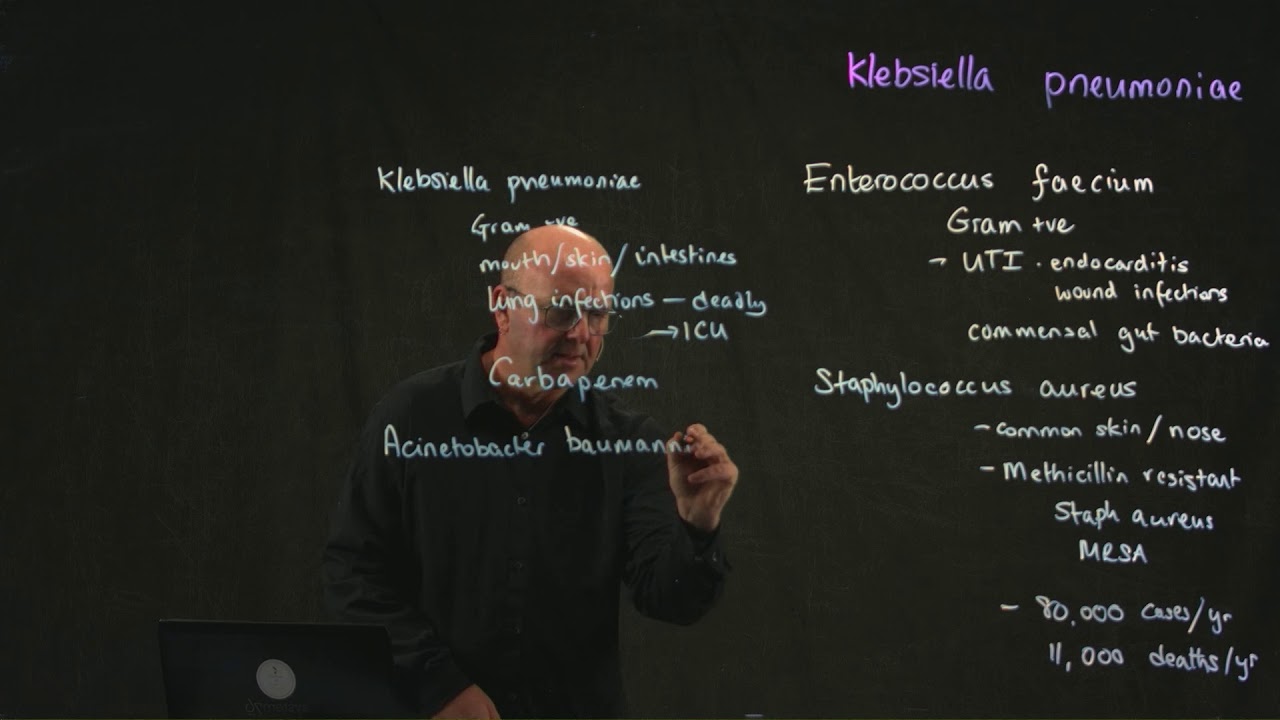 Klebsiella pneumoniae
Klebsiella pneumoniae
Gram -ve
mouth/skin/intestines
lung infections — deadly
→ICU
Carbapenem
Acinetobacter baumanni
Enterococcus faecium
Gram +ve
- UTI · endocarditis
wound infections
commensal gut bacteria
Staphylococcus aureus
- common skin/nose
- Methicillin resistant
Staph aureus
MRSA
- 80,000 cases/yr
11,000 deaths/yr